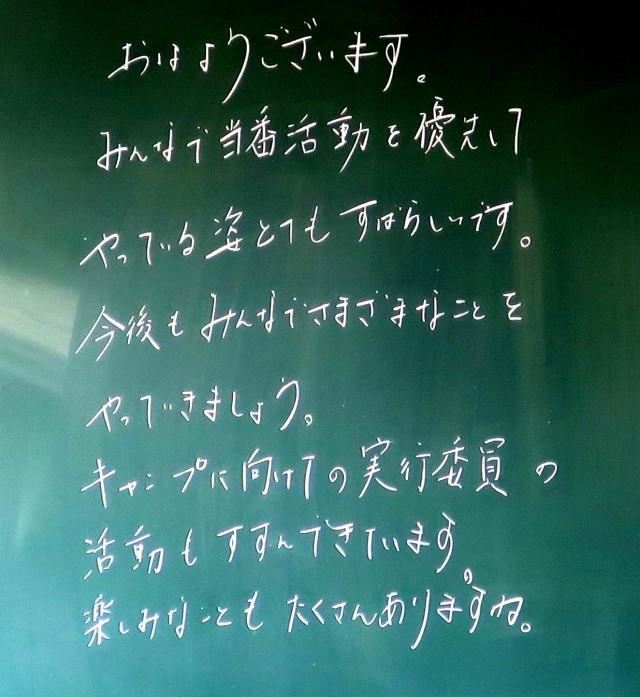 おはようございます。
みんなで当番活動を優先して
やっている姿とてもすばらしいです。
今後もみんなでさまざまなことを
やっていきましょう。
キャンプに向けての実行委員の
活動もすすんできています。
楽しみなこともたくさんありますね。